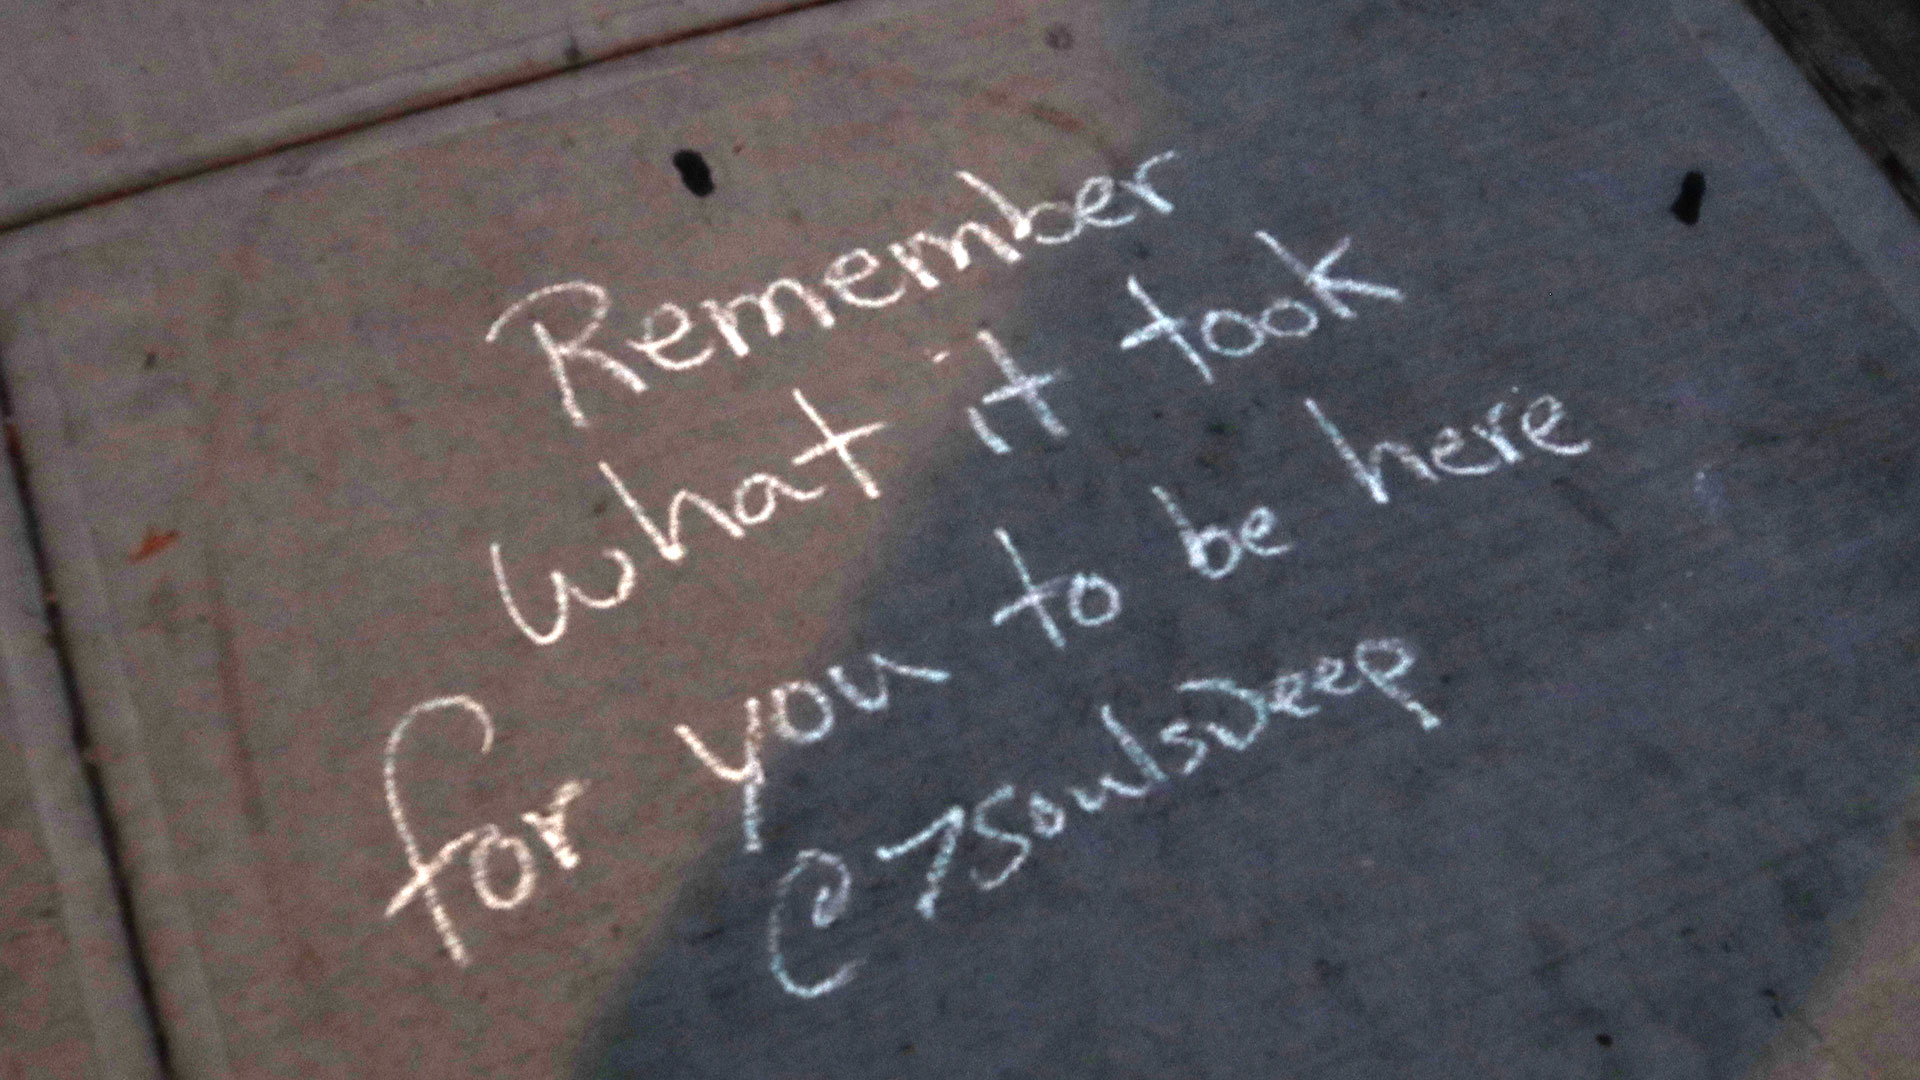 Remember
what it took
for you to be here
@7soulsDeep